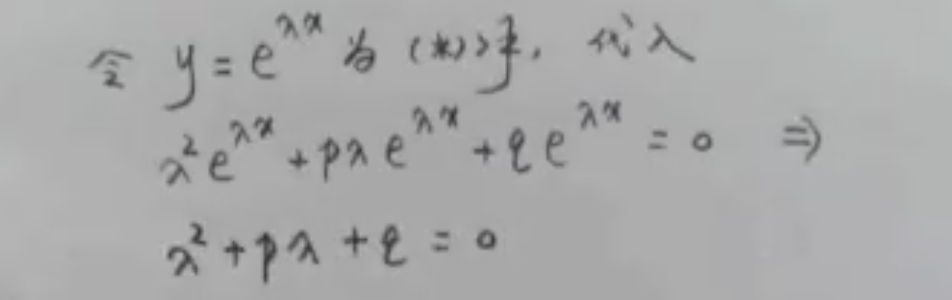 令 y = e^{λx} 为 (*) 之解. 代入
λ²e^{λx} + pλe^{λx} + qe^{λx} = 0 ⇒
λ² + pλ + q = 0